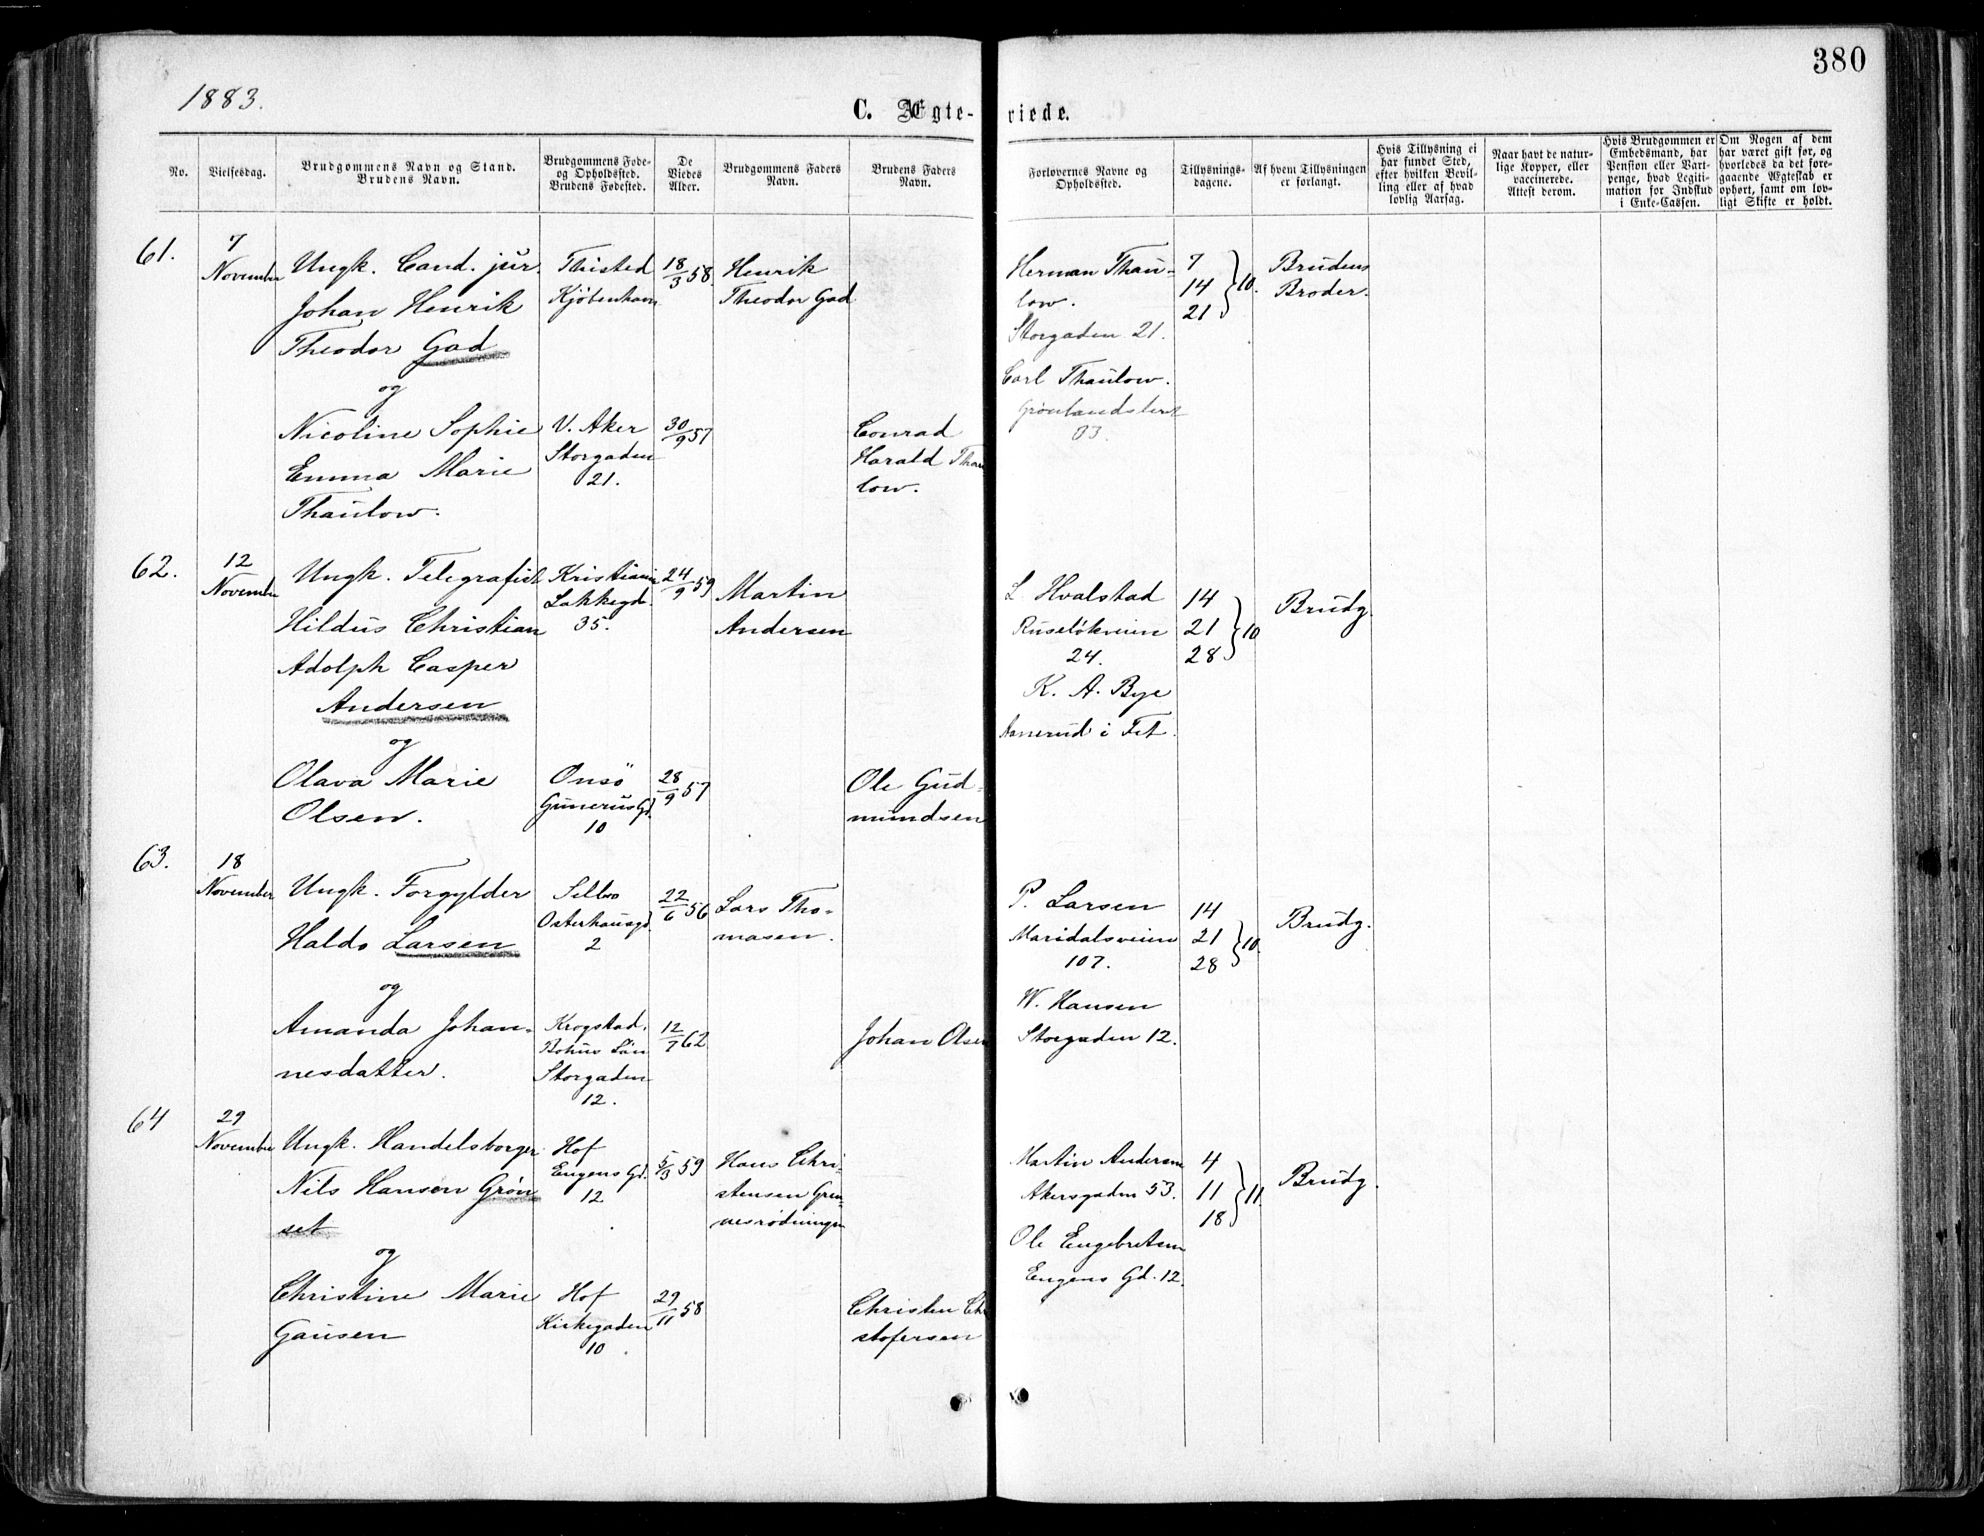 380
1883.
C. Ægte-viede.
No.
Vielsesdag.
Brudgommens Navn og Stand.
Brudens Navn.
Brudgommens Føde-
og Opholdssted.
Brudens Fødested.
De
Viedes
Alder.
Brudgommens Faders
Navn.
Brudens Faders
Navn.
Forlovernes Navne og
Opholdssted.
Tillysnings-
dagene.
Af hvem Tillysningen
er forlangt.
Hvis Tillysning ei
har fundet Sted,
efter hvilken Bevil-
ling eller af hvad
lovlig Aarsag.
Naar havt de natur-
lige Kopper, eller
vaccinerede.
Attest derom.
Hvis Brudgommen er
Embedsmand, har
Pension eller Vart-
penge, hvad Legiti-
mation for Indskud
i Enke-Cassen.
Om Nogen af dem
har været gift før, og
hvorledes da det fore-
gaaende Ægteskab er
ophørt, samt om lov-
ligt Skifte er holdt.
61.
7
November
Ungk. Cand. jur.
Johan Henrik
Theodor Gad
og
Nicoline Sophie
Emma Marie
Thaulow.
Thisted
Kjøbenhavn
V. Aker
Storgaden
21.
18/3 58
30/9 57
Henrik
Theodor Gad
Conrad
Harald Thau
low.
Herman Thau-
low.
Storgaden 21.
Carl Thaulow.
Grønlandsleret
7
14
21
10.
Brudens
Broder.
62.
12
November
Ungk. Telegrafist
Hildus Christian
Adolph Casper
Andersen
og
Olava Marie
Olsen.
Kristiania
Lakkegd.
35.
Onsö
Gunerius Gd.
10
24/9 59
28/9 57
Martin
Andersen
Ole Gud-
mundsen
L Hvalstad
Ruseløkveien
24.
K. A. Bye
i Fet.
14
21
28
10
Brudg.
63.
18
November
Ungk. Forgylder
Haldo Larsen
og
Amanda Johan-
nesdatter.
Selbo
Osterhausgd.
2
Krogstad.
Bohus Län
Storgaden
12.
22/6 56
12/7 62
Lars Tho-
masen.
Johan Olsen
P. Larsen
Maridalsveien
107.
W. Hansen
Storgaden 12.
14
21
28
10.
Brudg.
64
29
November
Ungk. Handelsborger
Nils Hansen Grøn
set
og
Christine Marie
Gausen
Hof
Eugens Gd.
12
Hof
Kirkegaden
10
5/3 59
29/11 58
Hans Chri-
stensen
Christen Chri
stofersen
Martin Andersen
Akersgaden 53.
Ole Engebretsen
Eugens Gd. 12.
4
11
18
11.
Brudg.